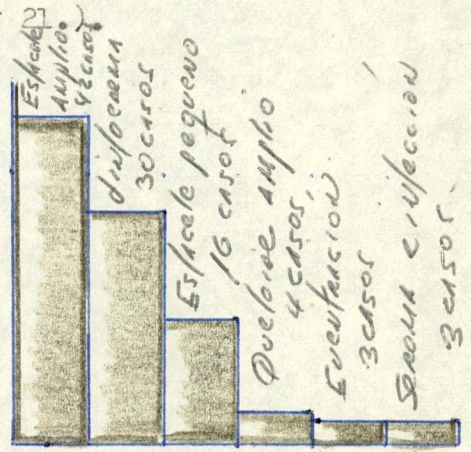 27
Esfacele
Amplio.
42 casos
Linfoerema
30 casos
Esfacele pequeno
16 casos
Queloide Amplio
4 casos,
Eventracion
3 casos
Seroma e infeccion
3 casos.